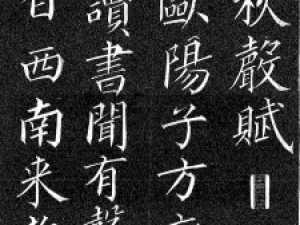 秋聲賦
歐陽子方
讀書聞有聲
自西南来